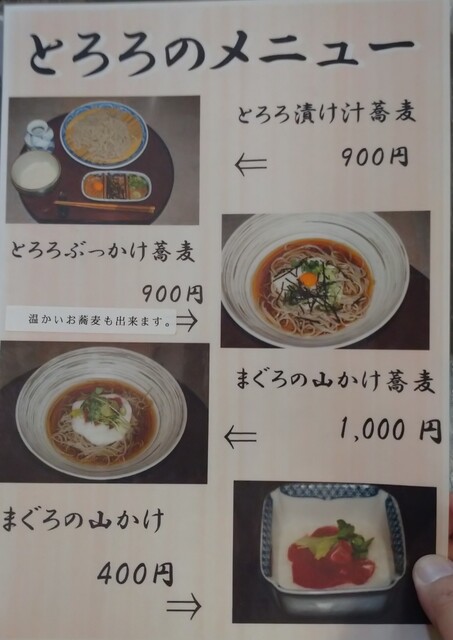 とろろのメニュー
とろろ漬け汁蕎麦
⇐ 900円
とろろぶっかけ蕎麦
900円
温かいお蕎麦も出来ます。⇒
まぐろの山かけ蕎麦
⇐ 1,000 円
まぐろの山かけ
400円
⇒